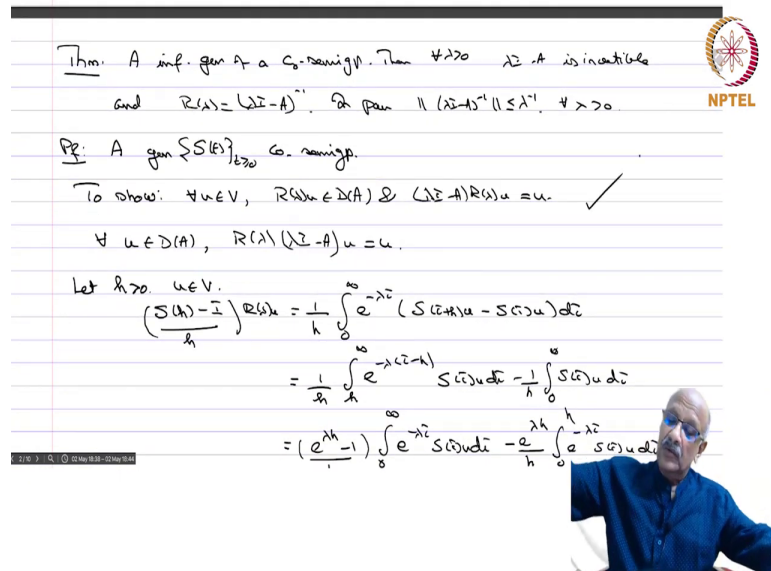 Thm. A inf. gen of a C₀-semigp. Then ∀λ>0 λI-A is invertible
and R(λ)=(λI-A)⁻¹. In parr ||(λI-A)⁻¹|| ≤ λ⁻¹. ∀ λ>0.
NPTEL
Pf: A gen {S(t)}_{t≥0} C₀-semigp.
To show: ∀u∈V, R(λ)u∈D(A) & (λI-A)R(λ)u = u. ✓
∀ u∈D(A), R(λ)(λI-A)u = u.
Let h>0. u∈V.
((S(h)-I)/h) R(λ)u = 1/h ∫₀^∞ e^{-λτ} (S(τ+h)u - S(τ)u)dτ
= 1/h ∫_h^∞ e^{-λ(τ-h)} S(τ)u dτ - 1/h ∫₀^∞ S(τ)u dτ
= (e^{λh}-1) ∫₀^∞ e^{-λτ} S(τ)u dτ - e^{λh}/h ∫₀^h e^{-λτ} S(τ)u dτ
2/10 02 May 18:38 - 02 May 18:44